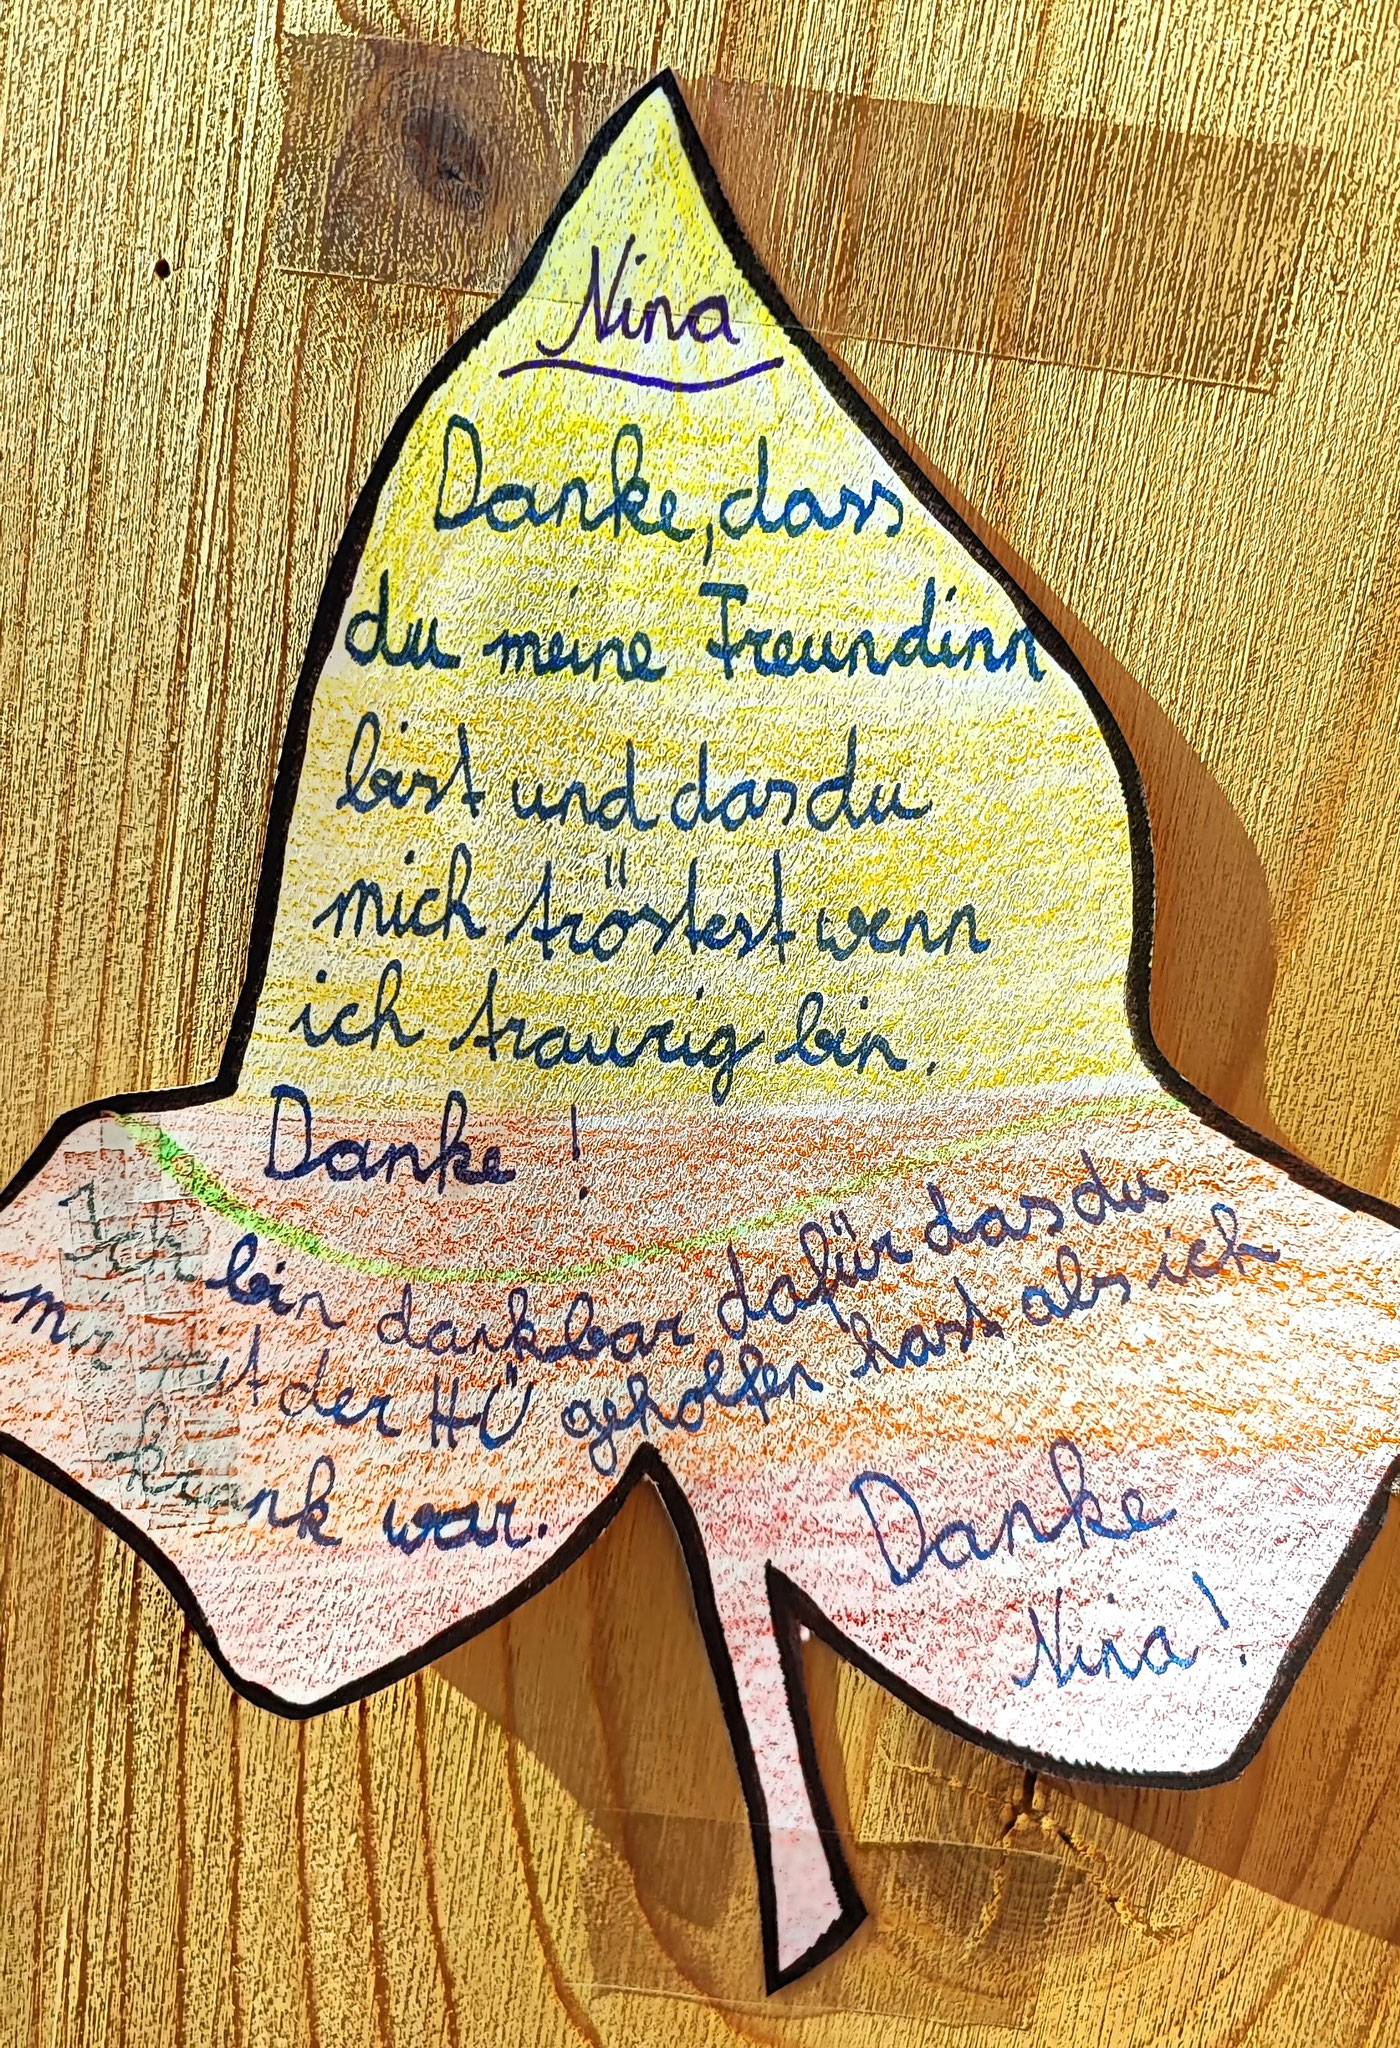 Nina
Danke, dass
du meine Freundinn
bist und das du
mich tröstest wenn
ich traurig bin.
Danke !
Ich bin dankbar dafür das du
mir mit der HÜ geholfen hast als ich
krank war.
Danke
Nina!